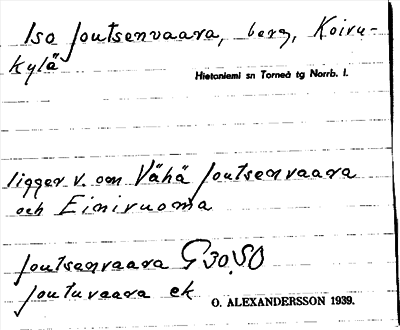 Iso Joutsenvaara, berg, Koivu-
kylä
Hietaniemi sn Torneå tg Norrb. l.
ligger v. om Vähä Joutsenvaara
och Einivuoma
Joutsenvaara G 30, SO
Joutuvaara ek
O. ALEXANDERSSON 1939.